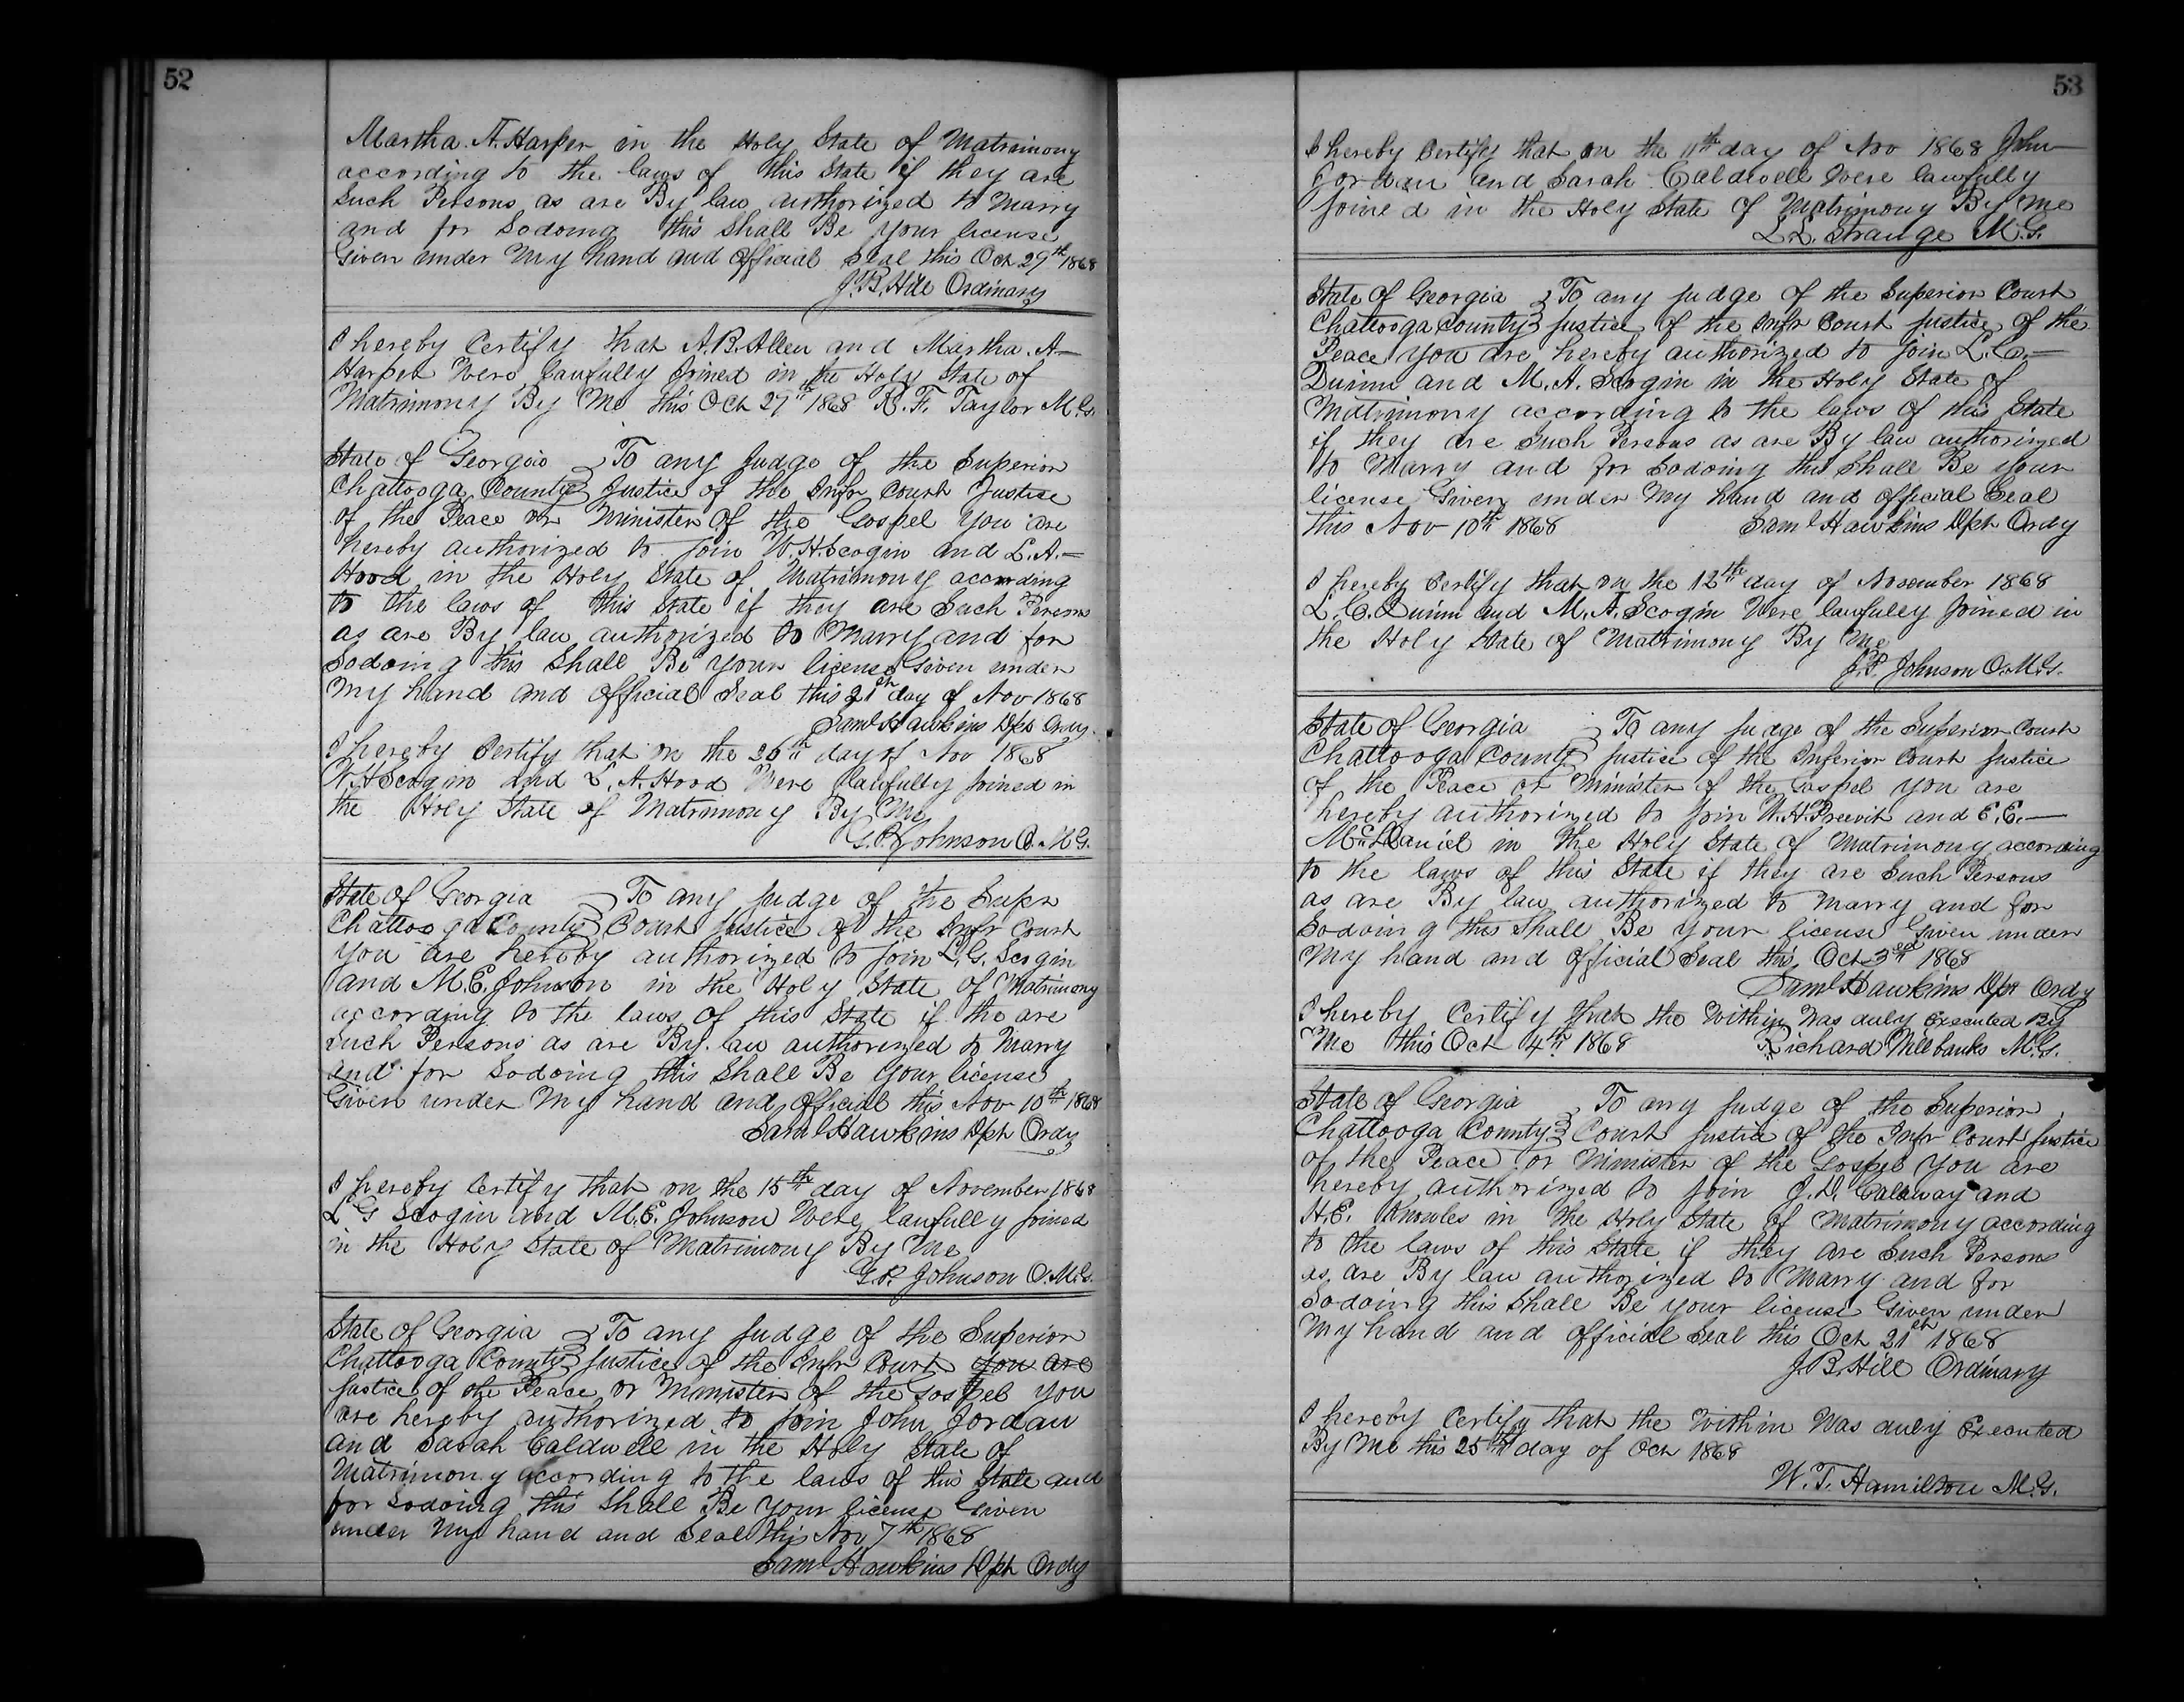 52
Martha A. Harper in the Holy State of Matrimony
according to the laws of this State if they are
Such Persons as are By law authorized to Marry
and for Sodoing this Shall Be your license
Given under My hand and official Seal this Oct 29th 1868
J. B. Hill Ordinary
I hereby Certify that A. B. Allen and Martha A—
Harper Were lawfully Joined in the Holy State of
Matrimony By Me this Oct 29th 1868 R. F. Taylor M.G.
State of Georgia } To any Judge of the Superior
Chattooga County } Justice of the Infr Court Justice
of the Peace or Minister of the Gospel you are
hereby authorized to join W. H. Scogin and L. A.—
Hood in the Holy State of Matrimony according
to the laws of this State if they are Such Persons
as are By law authorized to Marry and for
Sodoing this Shall Be your license Given under
My hand and official Seal this 21st day of Nov 1868
Saml Hawkins Dpt Ordy.
I hereby Certify that on the 26th day of Nov 1868
W. H Scogin and L. A. Hood Were lawfully Joined in
the Holy State of Matrimony By Me
G. P. Johnson O. M.G.
State of Georgia } To any Judge of the Supr
Chattooga County } Court Justice of the Infr Court
you are hereby authorized to join L. G. Scogin
and M. E. Johnson in the Holy State of Matrimony
according to the laws of this State if the are
Such Persons as are By law authorized to Marry
and for Sodoing this Shall Be your license
Given under My hand and official this Nov 10th 1868
Saml Hawkins Dpt Ordy
I hereby Certify that on the 15th day of November 1868
L G Scogin and M. E. Johnson Were lawfully Joined
in the Holy State of Matrimony By Me
G. P. Johnson O. M.G.
State of Georgia } To any Judge of the Superior
Chattooga County } Justice of the Infr Court you are
Justice of the Peace or Minister of the Gospel you
are hereby authorized to join John Jordan
and Sarah Caldwell in the Holy State of
Matrimony according to the laws of this State and
for Sodoing this Shall Be your license Given
under My hand and Seal this Nov 7th 1868
Saml Hawkins Dpt Ordy
53
I hereby Certify that on the 11th day of Nov 1868 John—
Jordan and Sarah Caldwell Were lawfully
Joined in the Holy State of Matrimony By me
L. L. Strange M.G.
State of Georgia } To any Judge of the Superior Court
Chattooga County } Justice of the Infr Court Justice of the
Peace you are hereby authorized to join L. C.—
Quinn and M. A. Scogin in the Holy State of
Matrimony according to the laws of this State
if they are Such Persons as are By law authorized
to Marry and for Sodoing this Shall Be your
license Given under My hand and official Seal
this Nov 10th 1868 Saml Hawkins Dpt Ordy
I hereby Certify that on the 12th day of November 1868
L. C. Quinn and M. A. Scogin Were lawfully Joined in
the Holy State of Matrimony By Me
G. P. Johnson O. M.G.
State of Georgia } To any Judge of the Superior Court
Chattooga County } Justice of the Inferior Court Justice
of the Peace or Minister of the Gospel you are
hereby authorized to join W. H. Preevit and E. E.—
McDaniel in the Holy State of Matrimony according
to the laws of this State if they are Such Persons
as are By law authorized to marry and for
Sodoing this Shall Be your license Given under
My hand and official Seal this Oct 3rd 1868
Saml Hawkins Dpt Ordy
I hereby Certify that the within Was duly Executed By
Me this Oct 4th 1868 Richard Milbanks M.G.
State of Georgia } To any Judge of the Superior
Chattooga County } Court Justice of the Infr Court Justice
of the Peace or Minister of the Gospel you are
hereby authorized to join J. D. Calaway and
H. E. Knowles in the Holy State of Matrimony according
to the laws of this State if they are Such Persons
as are By law authorized to Marry and for
Sodoing this Shall Be your license Given under
My hand and official Seal this Oct 21st 1868
J. B. Hill Ordinary
I hereby Certify that the Within Was duly Executed
By Me this 25th day of Oct 1868
W. T. Hamilton M.G.